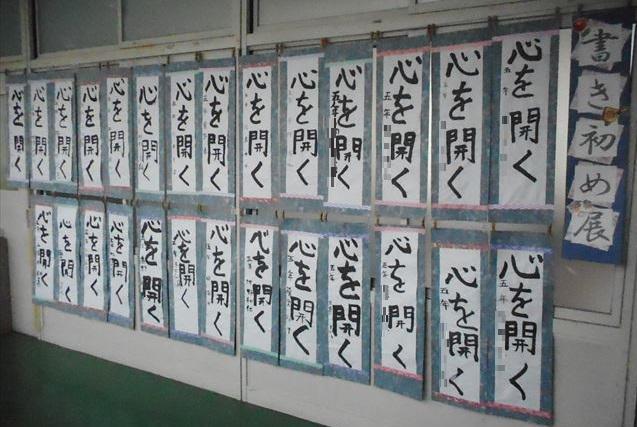 書き初め展
心を開く
五年
心を開く
五年
心を開く
五年
心を開く
五年
心を開く
心を開く
心を開く
五年
心を開く
心を開く
心を開く
心を開く
心を開く
心を開く
心を開く
心を開く
五年
心を開く
五年
心を開く
心を開く
五年
心を開く
五年
心を開く
心を開く
心を開く
心を開く
心を開く
心を開く
心を開く
心を開く